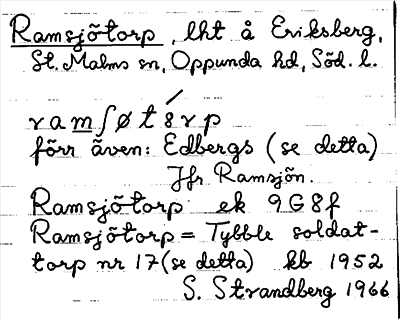 Ramsjötorp, lht å Eriksberg,
St. Malms sn, Oppunda hd, Söd. l.
ramʃøtɵrp
förr även: Edbergs (se detta)
Jfr Ramsjön.
Ramsjötorp ek 9G8f
Ramsjötorp = Tybble soldat-
torp nr 17 (se detta) kb 1952
S. Strandberg 1966